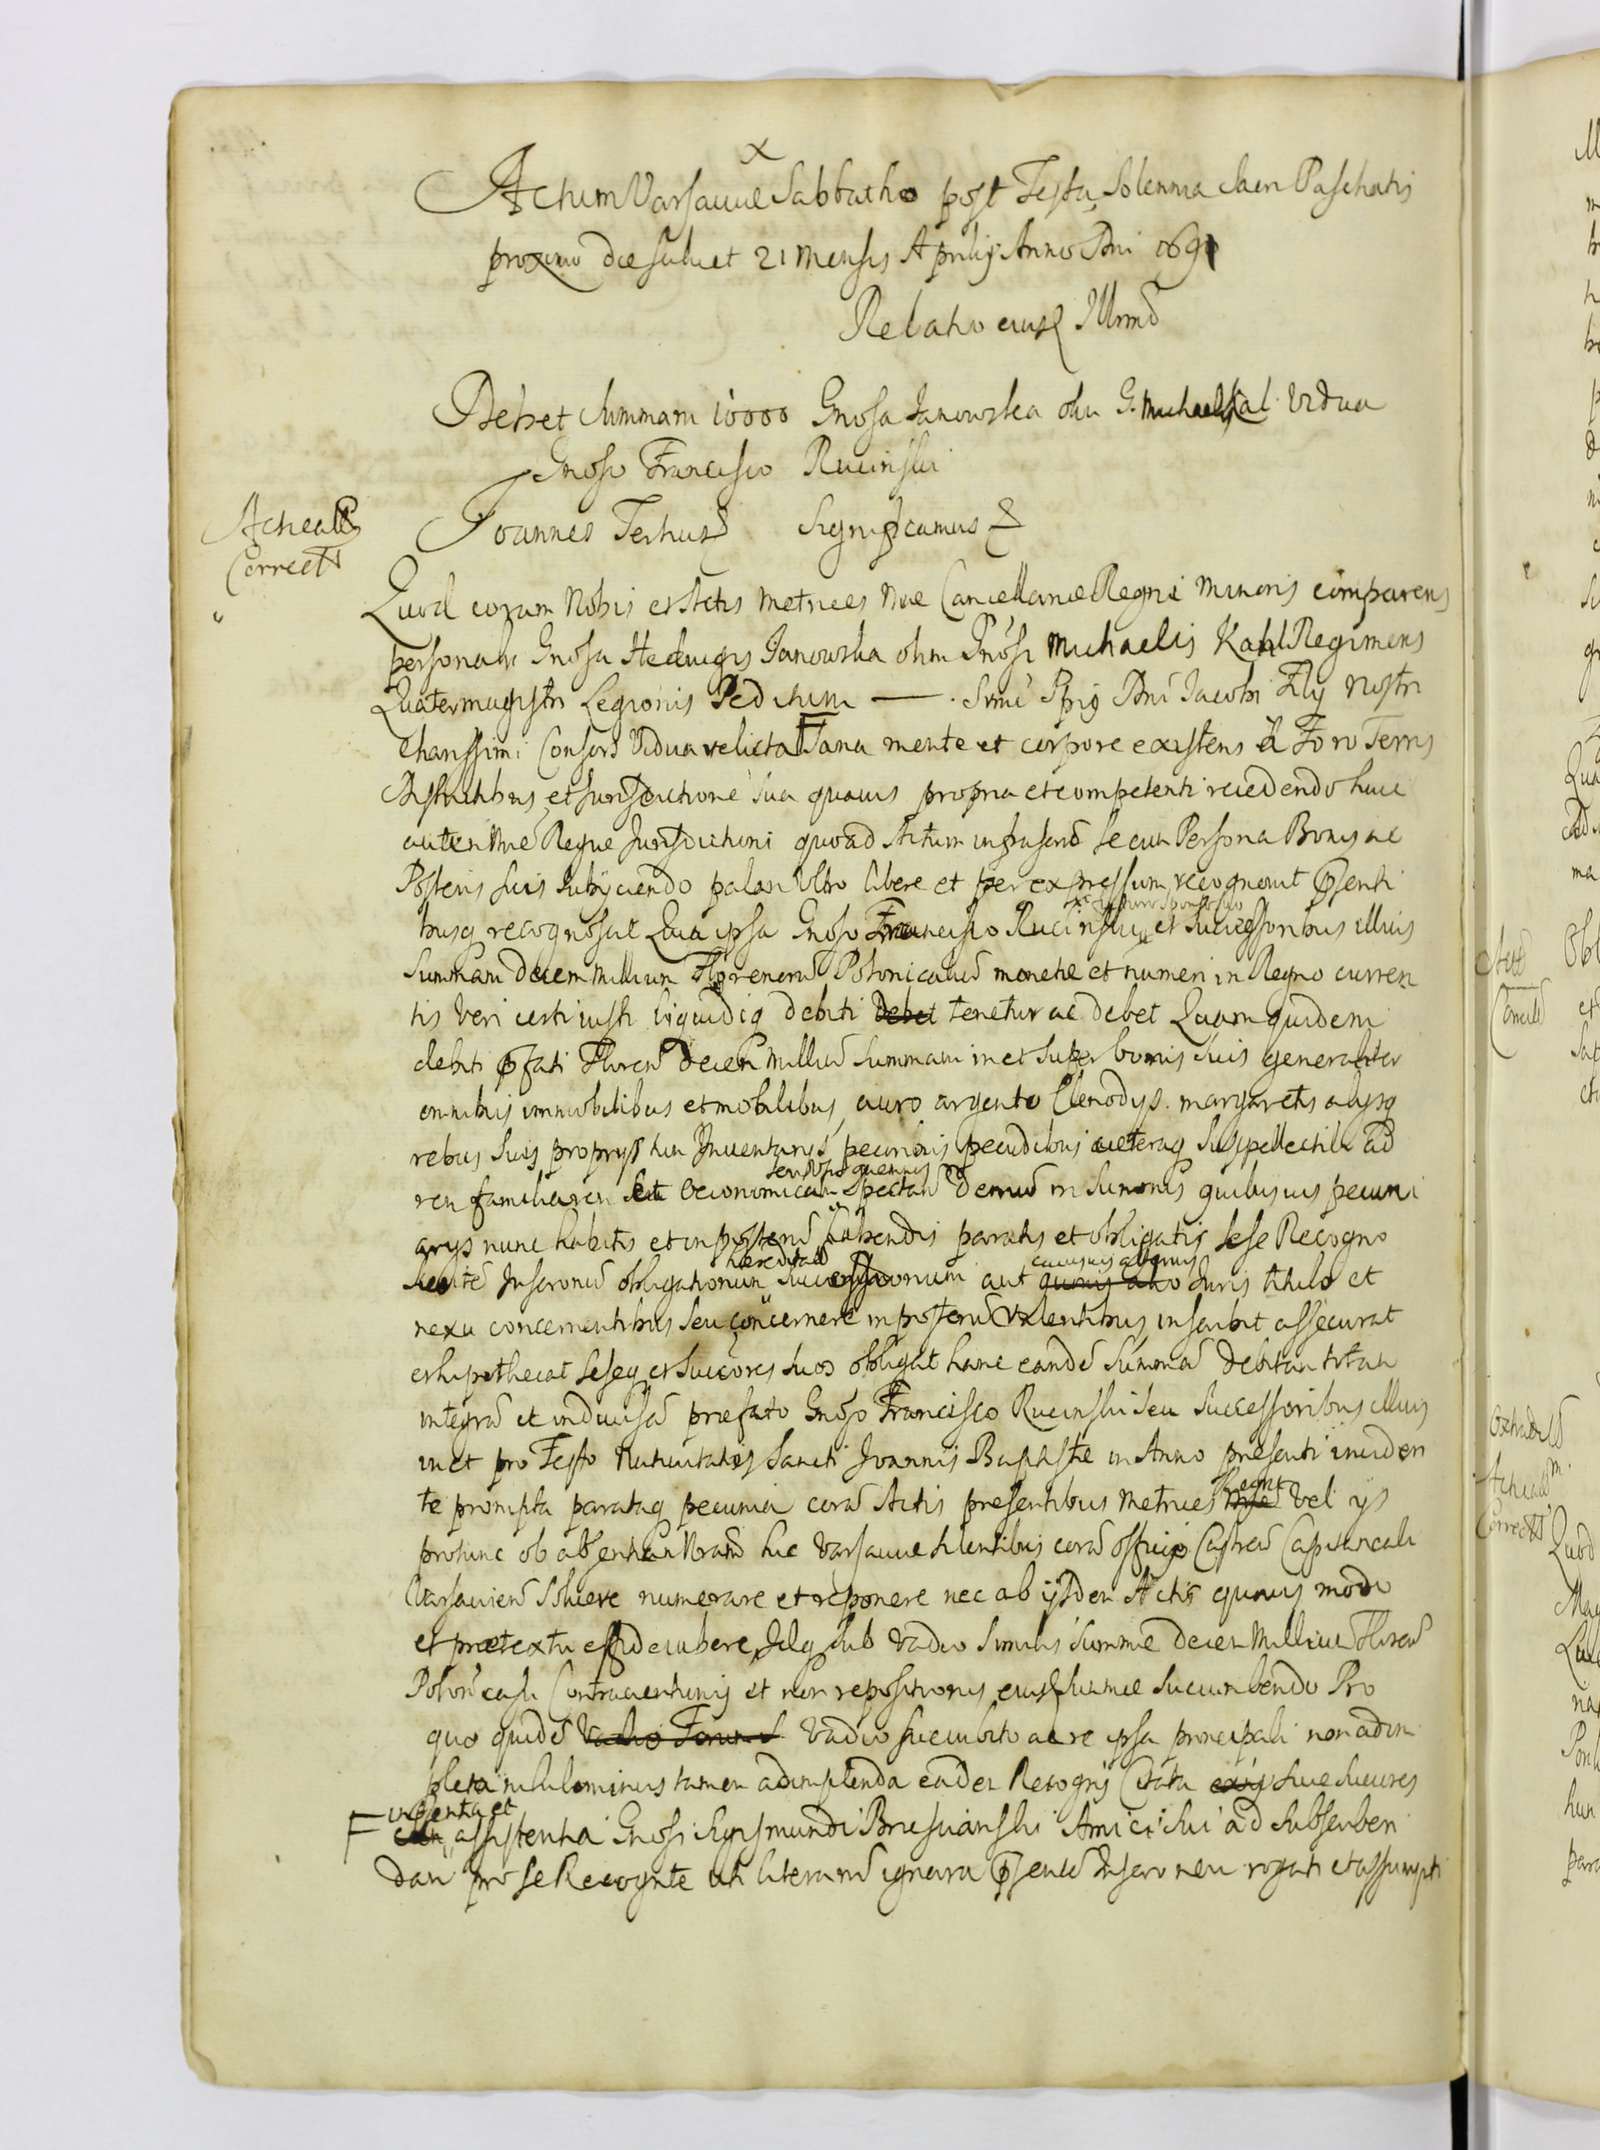 x
Actum Varsaviae Sabbatho post Festa Solennia Sacri Paschatis
proximo die scilicet 21 Mensis Aprilis Anno Dni 1691
Relatio eiusd Illrmi
Debet Summam 10000 Gnosa Janowska olim G. Michaelis Kal Vidua
Gnoso Francisco Rucinski
Acticat
Correct
Joannes Tertius Significamus &
Quod coram Nobis et Actis Metrices Nrae Cancellariae Regni Minoris comparens
personalr Gnosa Hedvigis Janowska olim Gnosi Michaelis Kahl Regiminis
Quatermagistri Legionis Peditum — Srmi Prpis Dni Jacobi Filij Nostri
Charissimi Consors Vidua relicta F Sana mente et corpore existens à Foro Terris
Districtibus et Jurisdictione sua quavis propria et competenti recedendo huic
autem Nrae Regiae Jurisdictioni quoad Actum infrascrip se cum Persona Bonis ac
Posteris suis subijciendo palam Ultro libere et per expressum recognovit psenti
busq recognoscit Quia ipsa Gnoso Francisco Rucinski et Successoribus illius
Summam decem millium Florenorum Polonicalium monetae et numeri in Regno curren
tis Veri certi iusti liquidiq debiti Debet tenetur ac debet Quam quidem
debiti pfati Floren decem milliu Summam in et super bonis suis generaliter
omnibus immobilibus et mobilibus, auro argento Clenodijs margaretis alijsq
rebus suis proprijs tum Inventarijs, pecoribus pecudibus caeteraq suppellectili ad
rem familiarem seu Oeconomicam spectan demu in Summis quibusvis pecuni
arijs nunc habitis et in posteru habendis paratis et obligatis sese Recogno
hereditar cuiusvis alterius
scente Inscrionu obligationum Successionum aut quovis alio Juris titulo et
nexu concernentibus seu concernere in posteru valentibus, inscribit assecurat
et hipothecat seseq et succores suos obligat hanc eande Summa debitam totam
integra et indivisa praefato Gnoso Francisco Rucinski seu Successoribus illius
in et pro Festo Nativitatis Sancti Joannis Baptistae in Anno praesenti inciden
te prompta parataq pecunia cora Actis praesentibus Metrices Regni vel ijs
prohinc ob absentiam Nram hic Varsaviae silentibus cora officio Castren Capitaneali
Varsavien Solvere numerare et reponere nec ab ijsdem Actis quovis modo
et praetextu effidecubere Idq sub vadio similis summae decem milliu Floren
Polonicali Contraventionis et non repositionis eiusd Summae succumbendo Pro
quo quide Vadio Ferund Vadio succubito ac re ipsa principali non adim
pleta nihilominus tamen adimplenda eadem Recogns Citata suive Succres
F in psentia et
cum assistentia Gnosi Sigismundi Brusianski Amici sui ad subscriben
dam pro se Recognte uti literaru ignara psente Inscrionem rogati et assumpti